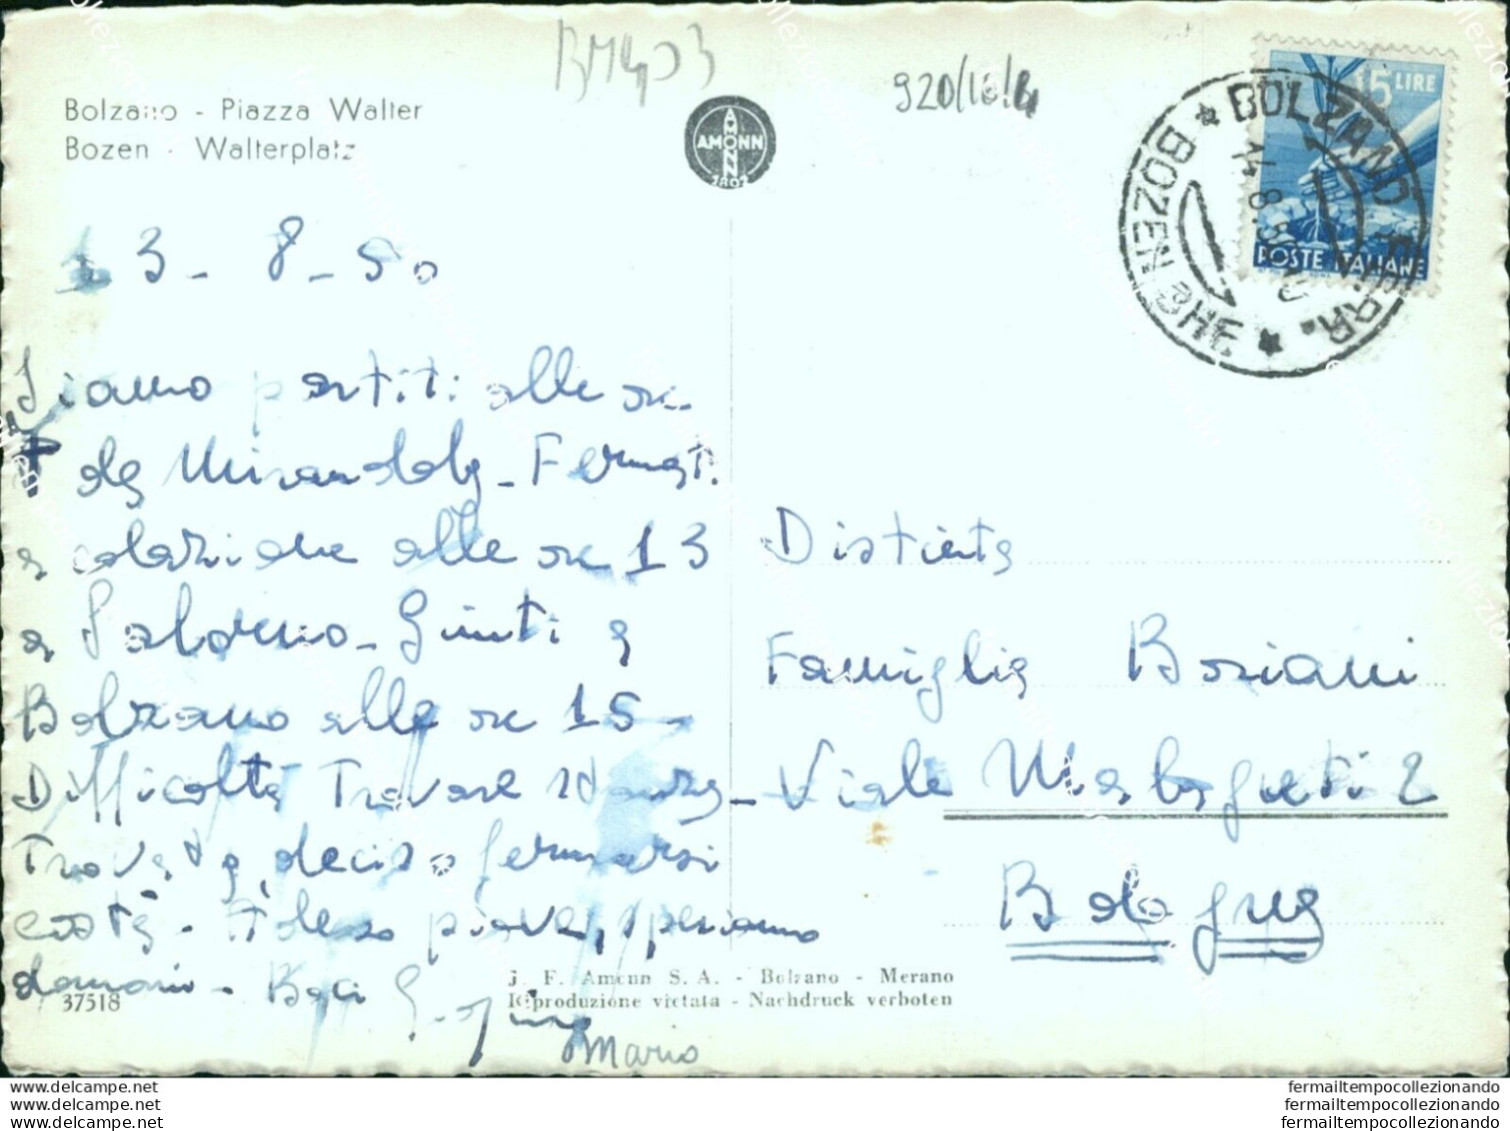 BM403
920/16/4
Bolzano - Piazza Walter
Bozen - Walterplatz
AMONN
AMONN
1802
15 LIRE
POSTE ITALIANE
BOLZANO FERR.
BOZEN
14.8.50
13-8-50
Siamo partiti alle ore
da Mirandola - Fermati
a colazione alle ore 13
a Salorno - Giunti a
Bolzano alle ore 15 -
Difficoltà trovare stanza -
Trovata, deciso fermarsi
costà - Adesso piove, speriamo
domani - Baci
Mario
Distinta
Famiglia Boriani
Viale Malaguti 2
Bologna
37518
J. F. Amonn S. A. - Bolzano - Merano
Riproduzione vietata - Nachdruck verboten
delcampe.net
www.delcampe.net
www.delcampe.net
fermailtempocollezionando
fermailtempocollezionando
fermailtempocollezionando